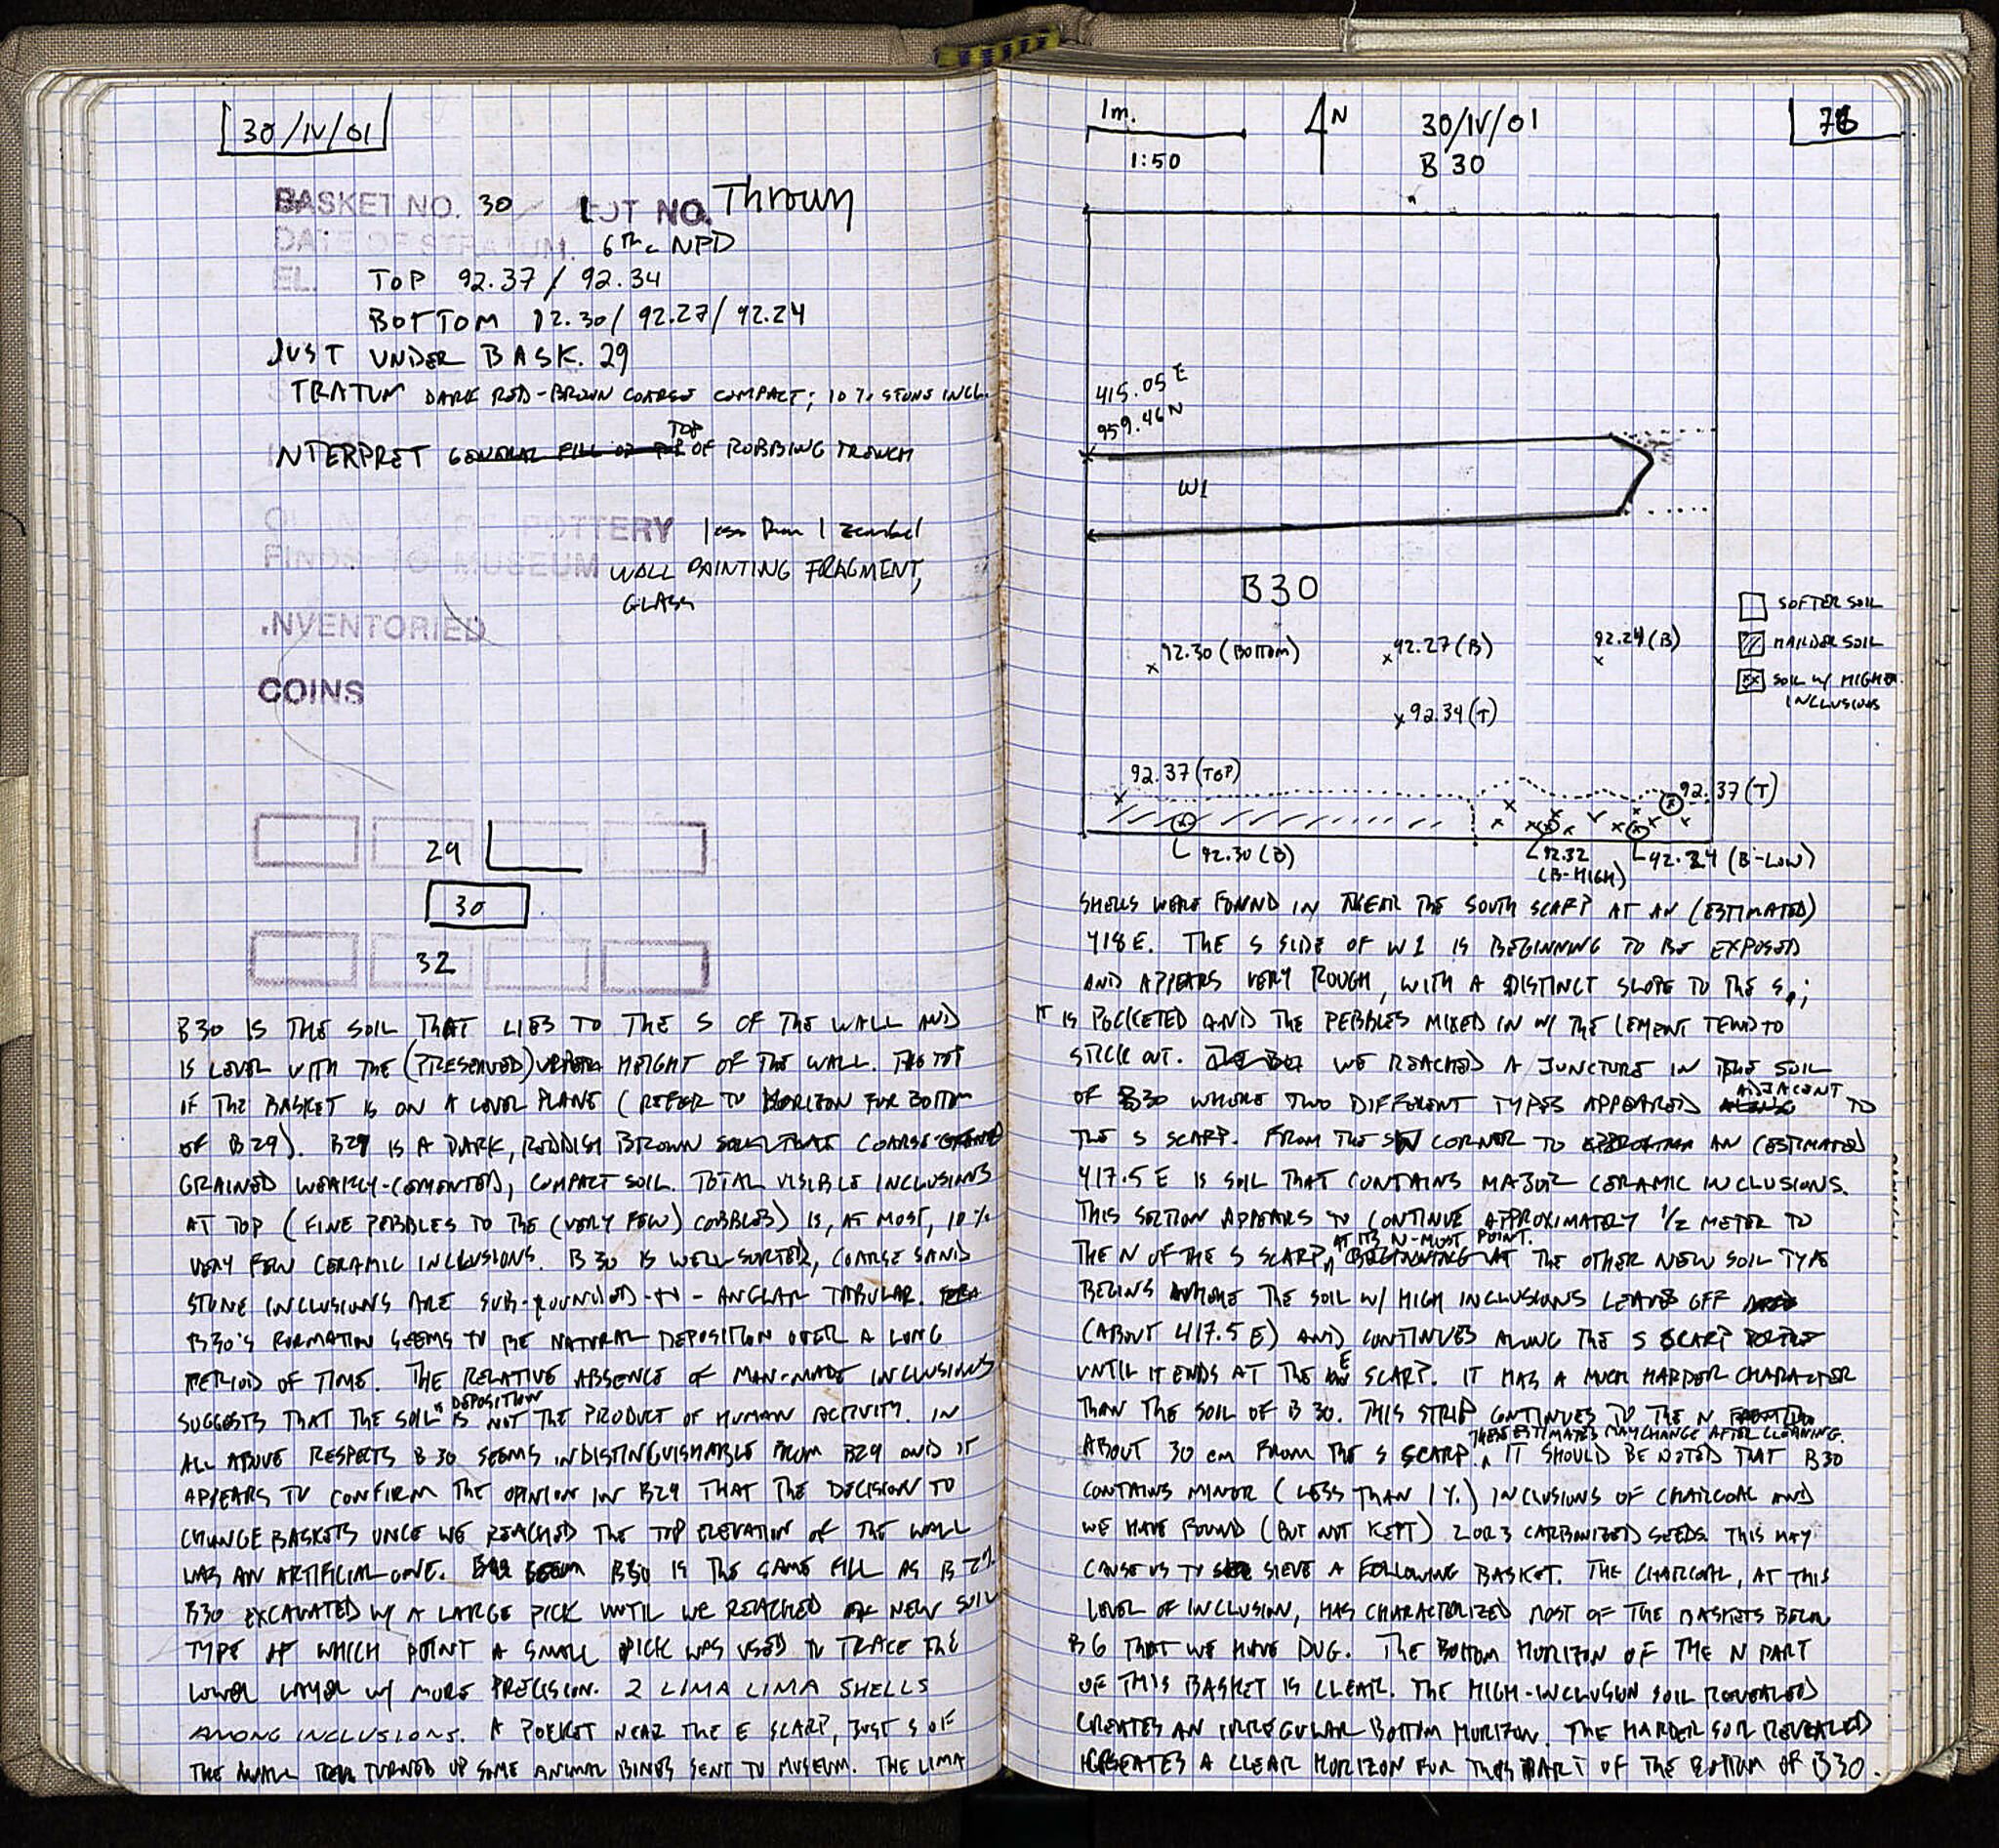 30/IV/01
BASKET NO. 30 LOT NO. Thrown
DATE OF STRATUM. 6th c NPD
EL. TOP 92.37 / 92.34
BOTTOM 92.30 / 92.27 / 92.24
JUST UNDER BASK. 29
STRATUM DARK RED-BROWN COARSE COMPACT; 10% STONE INCL.
INTERPRET GENERAL FILL OR TOP OF ROBBING TRENCH
QUANTITY OF POTTERY less than 1 zembel
FINDS TO MUSEUM WALL PAINTING FRAGMENT,
GLASS
INVENTORIED
COINS
29
30
32
B30 IS THE SOIL THAT LIES TO THE S OF THE WALL AND
IS LEVEL WITH THE (PRESERVED) UPPER HEIGHT OF THE WALL. THE TOP
OF THE BASKET IS ON A LEVEL PLANE (REFER TO HORIZON FOR BOTTOM
OF B29). B29 IS A DARK, REDDISH BROWN COARSE
GRAINED WEAKLY-CEMENTED, COMPACT SOIL. TOTAL VISIBLE INCLUSIONS
AT TOP (FINE PEBBLES TO THE (VERY FEW) COBBLES) IS, AT MOST, 10%
VERY FEW CERAMIC INCLUSIONS. B30 IS WELL-SORTED, COARSE SAND
STONE INCLUSIONS ARE SUB-ROUNDED-TO-ANGLAR TABULAR.
B30'S FORMATION SEEMS TO BE NATURAL DEPOSITION OVER A LONG
PERIOD OF TIME. THE RELATIVE ABSENCE OF MAN-MADE INCLUSIONS
SUGGESTS THAT THE SOIL'S DEPOSITION IS NOT THE PRODUCT OF HUMAN ACTIVITY. IN
ALL ABOVE RESPECTS B30 SEEMS INDISTINGUISHABLE FROM B29 AND IT
APPEARS TO CONFIRM THE OPINION IN B29 THAT THE DECISION TO
CHANGE BASKETS ONCE WE REACHED THE TOP ELEVATION OF THE WALL
WAS AN ARTIFICIAL ONE. B30 IS THE SAME FILL AS B29.
B30 EXCAVATED W/ A LARGE PICK UNTIL WE REACHED NEW SOIL
TYPE AT WHICH POINT A SMALL PICK WAS USED TO TRACE THE
LOWER LAYER W/ MORE PRECISION. 2 LIMA LIMA SHELLS
AMONG INCLUSIONS. A POCKET NEAR THE E SCARP, JUST S OF
THE WALL TURNED UP SOME ANIMAL BONES SENT TO MUSEUM. THE LIMA
1m.
1:50
N
30/IV/01
B 30
76
415.05 E
959.46 N
W1
B30
SOFTER SOIL
HARDER SOIL
SOIL W/ HIGHER
INCLUSIONS
92.30 (BOTTOM)
92.27 (B)
92.24 (B)
92.34 (T)
92.37 (TOP)
92.37 (T)
92.30 (B)
92.32
(B-HIGH)
92.24 (B-LOW)
SHELLS WERE FOUND IN NEAR THE SOUTH SCARP AT AN (ESTIMATED)
418 E. THE S SIDE OF W1 IS BEGINNING TO BE EXPOSED
AND APPEARS VERY ROUGH, WITH A DISTINCT SLOPE TO THE S;
IT IS POCKETED AND THE PEBBLES MIXED IN W/ THE CEMENT TEND TO
STICK OUT. WE REACHED A JUNCTURE IN THE SOIL
OF B30 WHERE TWO DIFFERENT TYPES APPEARED ALONG ADJACENT TO
THE S SCARP. FROM THE SW CORNER TO AN (ESTIMATED)
417.5 E IS SOIL THAT CONTAINS MAJOR CERAMIC INCLUSIONS.
THIS SECTION APPEARS TO CONTINUE APPROXIMATELY 1/2 METER TO
THE N OF THE S SCARP, AT ITS N-MOST POINT. BEGINNING AT THE OTHER NEW SOIL TYPE
BEGINS WHERE THE SOIL W/ HIGH INCLUSIONS LEAVES OFF
(ABOUT 417.5 E) AND CONTINUES ALONG THE S SCARP
UNTIL IT ENDS AT THE E SCARP. IT HAS A MUCH HARDER CHARACTER
THAN THE SOIL OF B 30. THIS STRIP CONTINUES TO THE N
ABOUT 30 cm FROM THE S SCARP. THESE ESTIMATES MAY CHANGE AFTER CLEANING. IT SHOULD BE NOTED THAT B30
CONTAINS MINOR (LESS THAN 1%) INCLUSIONS OF CHARCOAL AND
WE HAVE FOUND (BUT NOT KEPT) 2 OR 3 CARBONIZED SEEDS. THIS MAY
CAUSE US TO SIEVE A FOLLOWING BASKET. THE CHARCOAL, AT THIS
LEVEL OF INCLUSION, HAS CHARACTERIZED MOST OF THE BASKETS BELOW
B6 THAT WE HAVE DUG. THE BOTTOM HORIZON OF THE N PART
OF THIS BASKET IS CLEAR. THE HIGH-INCLUSION SOIL REVEALED
CREATES AN IRREGULAR BOTTOM HORIZON. THE HARDER SOIL REVEALED
CREATES A CLEAR HORIZON FOR THIS PART OF THE BOTTOM OF B30.